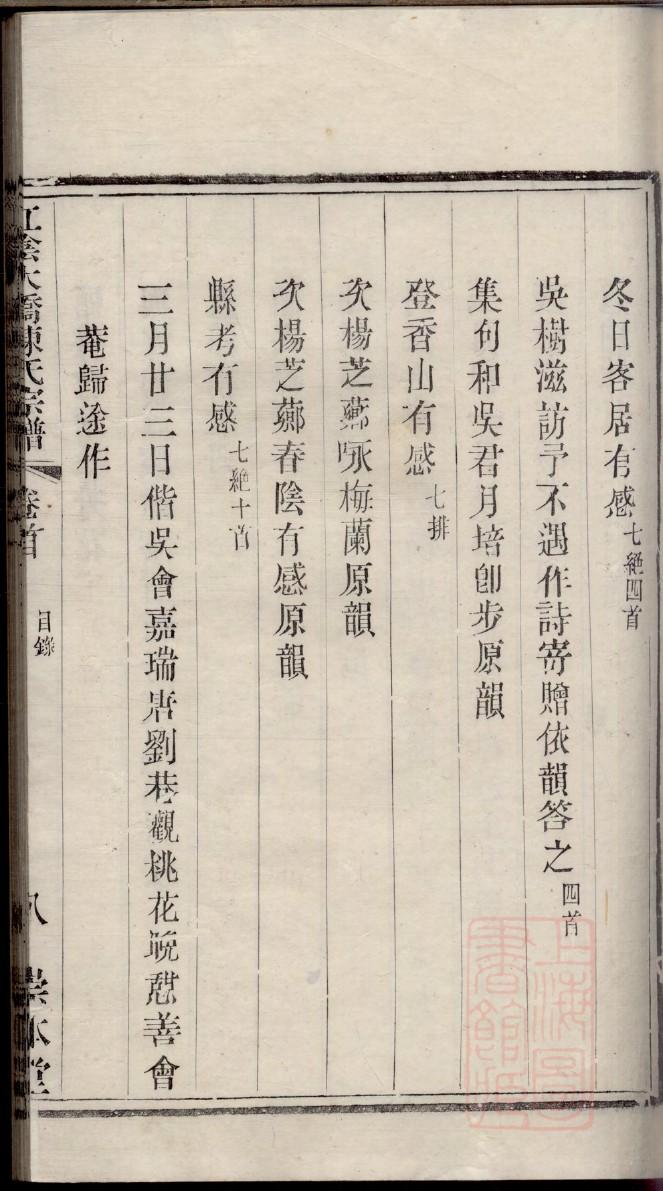 冬日客居有感七絕四首
吳樹滋訪予不遇作詩寄贈依韻答之四首
集句和吳君月培卽步原韻
登香山有感七排
次楊芝薌咏梅蘭原韻
次楊芝薌春陰有感原韻
縣考有感七絕十首
三月廿三日偕吳會嘉瑞唐劉巷觀桃花晚憩善會
菴歸途作
江陰大橋陳氏宗譜 卷首 目錄 八 崇本堂
上海圖書館藏